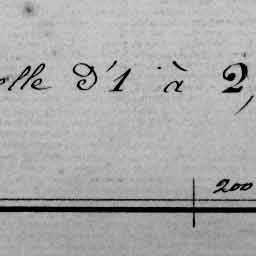 olle d'1 à 2,
200